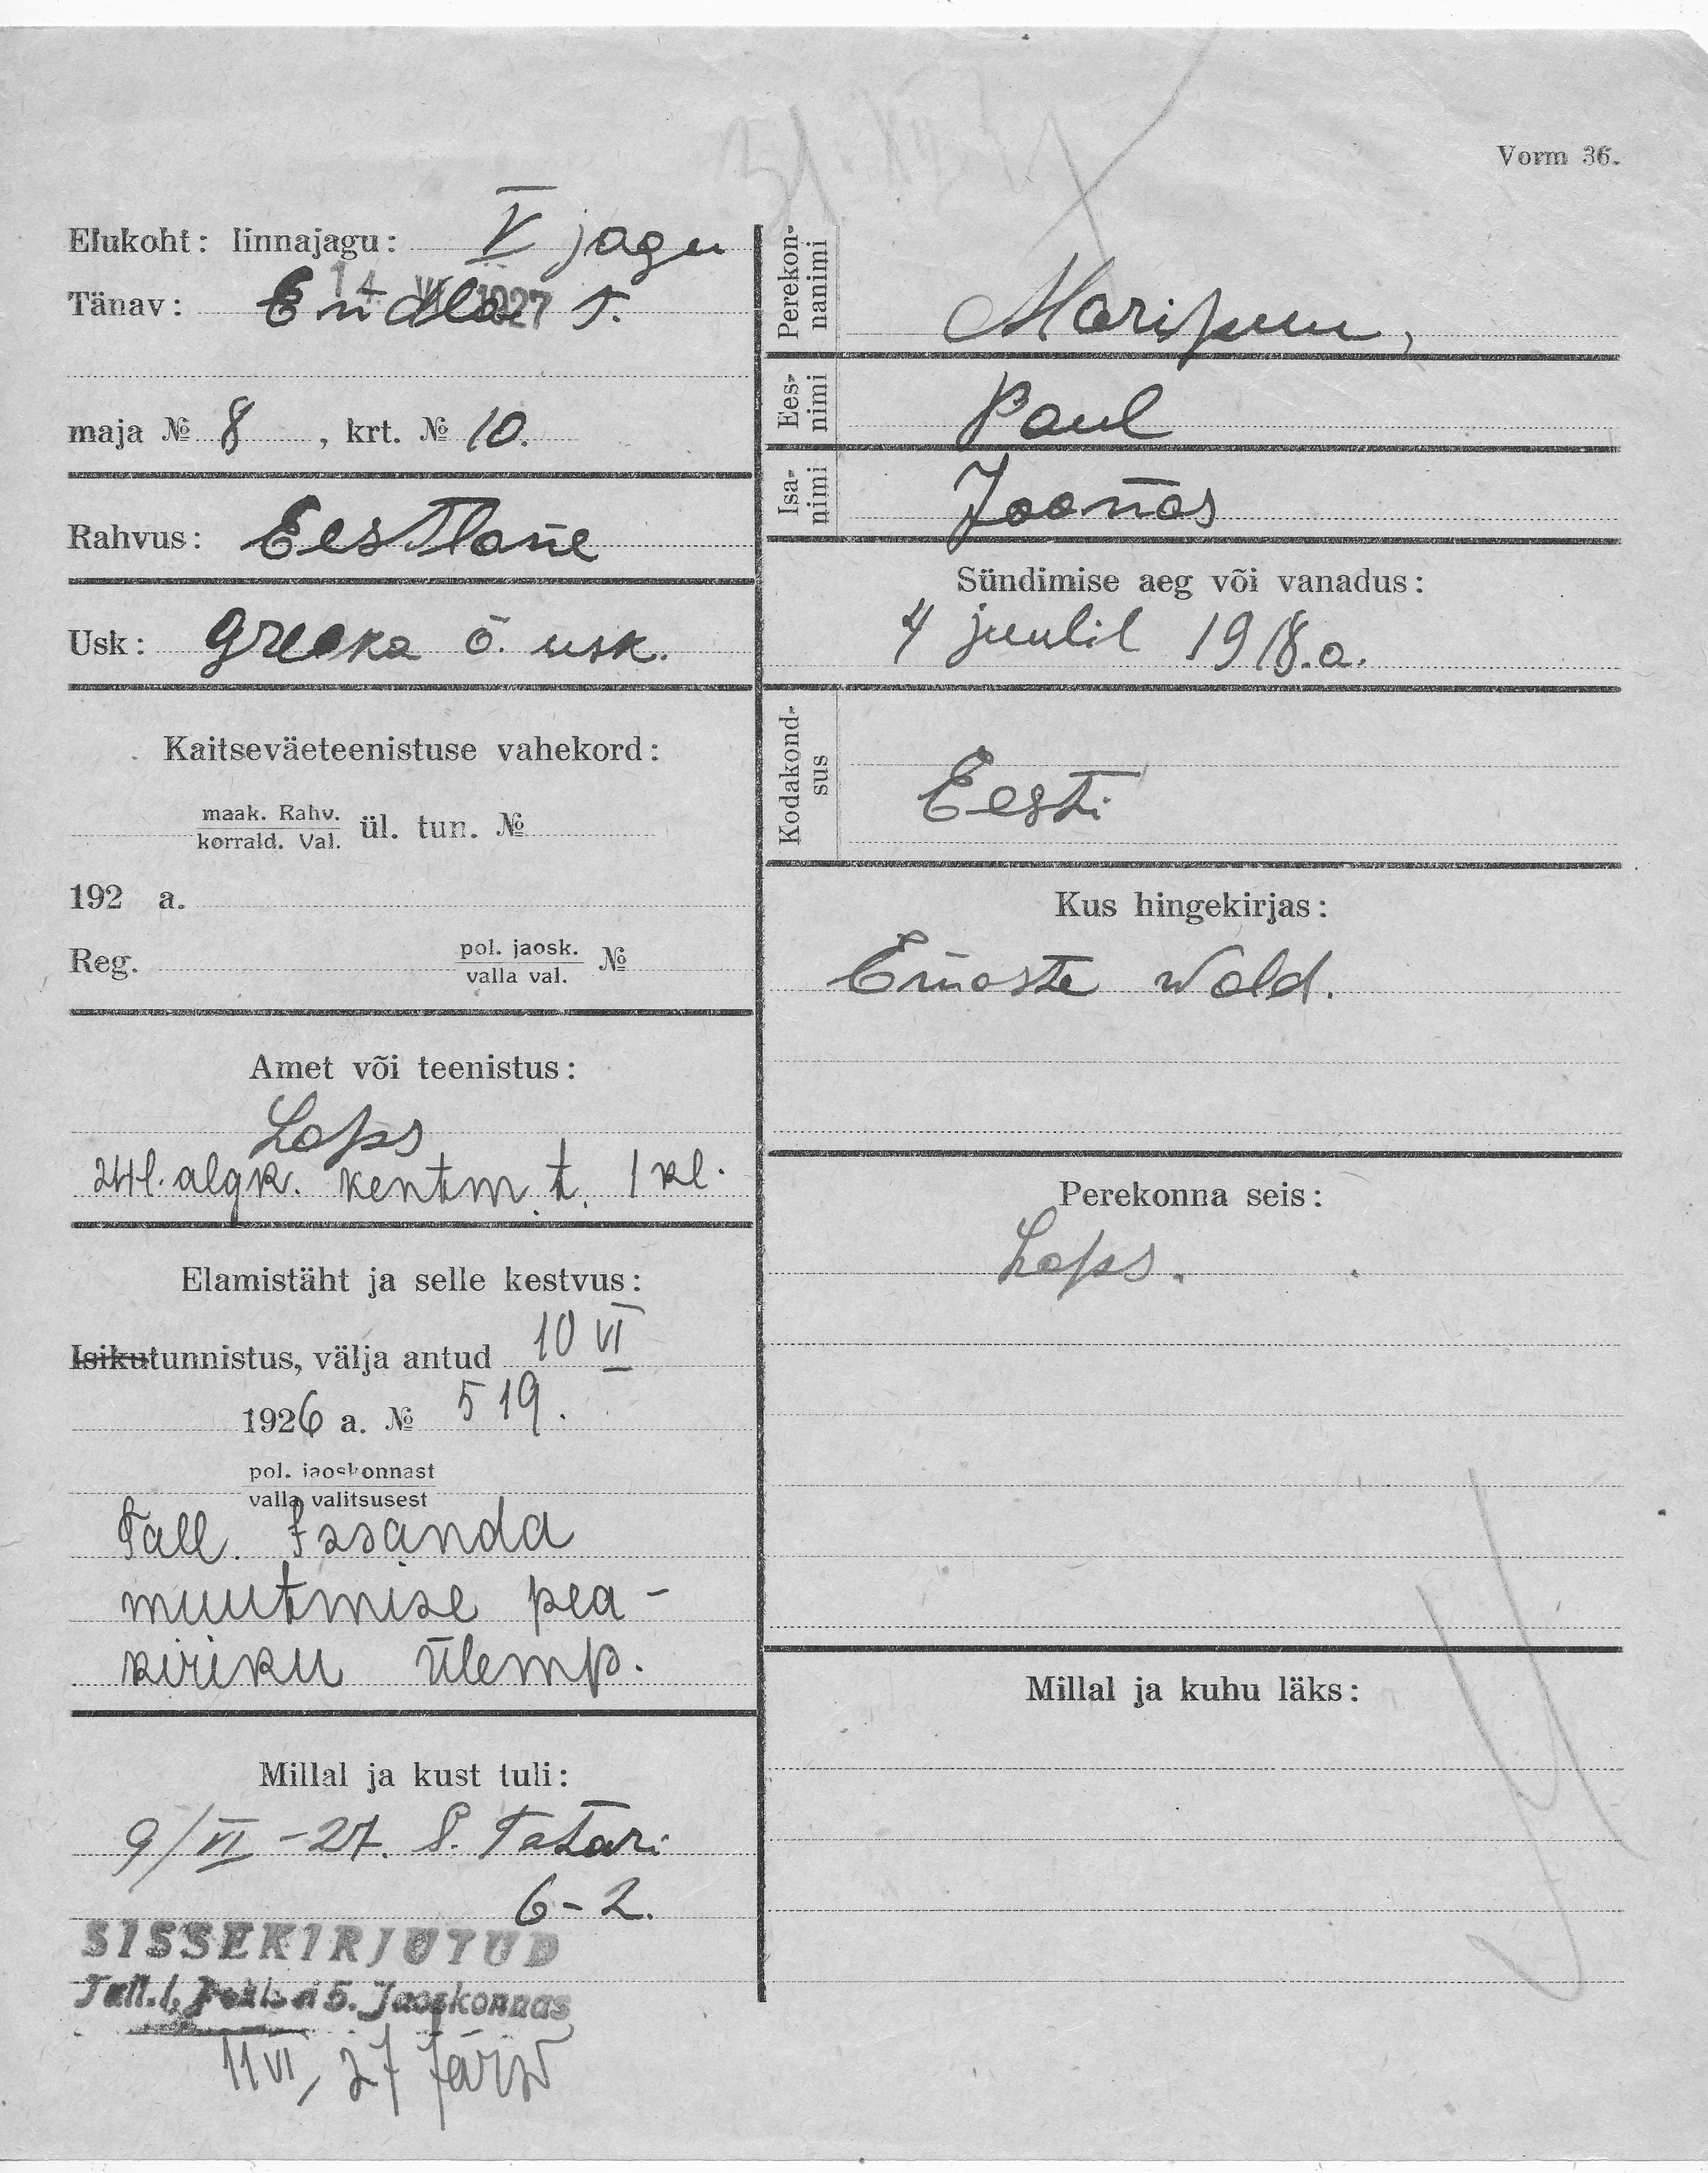 Vorm 36.
Elukoht: linnajagu: V jagu
14 VI 1927
Tänav: Endla t.
maja № 8, krt. № 10.
Rahvus: Eestlane
Usk: Greeka õ. usk.
Kaitseväeteenistuse vahekord:
maak. Rahv.
korrald. Val. ül. tun. №
192 a.
Reg. pol. jaosk.
valla val. №
Amet või teenistus:
Laps
24 l. algk. kentm. t. 1 kl.
Elamistäht ja selle kestvus:
Isikutunnistus, välja antud 10 VI
1926 a. № 519.
pol. jaoskonnast
valla valitsusest
Tall. Issanda
muutmise pea-
kiriku ülemp.
Millal ja kust tuli:
9/VI-27. S. Tatari
6-2.
SISSEKIRJUTUD
Tall. 5. Jaoskonnas
11 VI, 27 Järw
Perekon-
nanimi
Maripuu,
Ees-
nimi
Paul
Isa-
nimi
Joonas
Sündimise aeg või vanadus:
4 juulil 1918.a.
Kodakond-
sus
Eesti
Kus hingekirjas:
Emaste wald.
Perekonna seis:
Laps.
Millal ja kuhu läks: